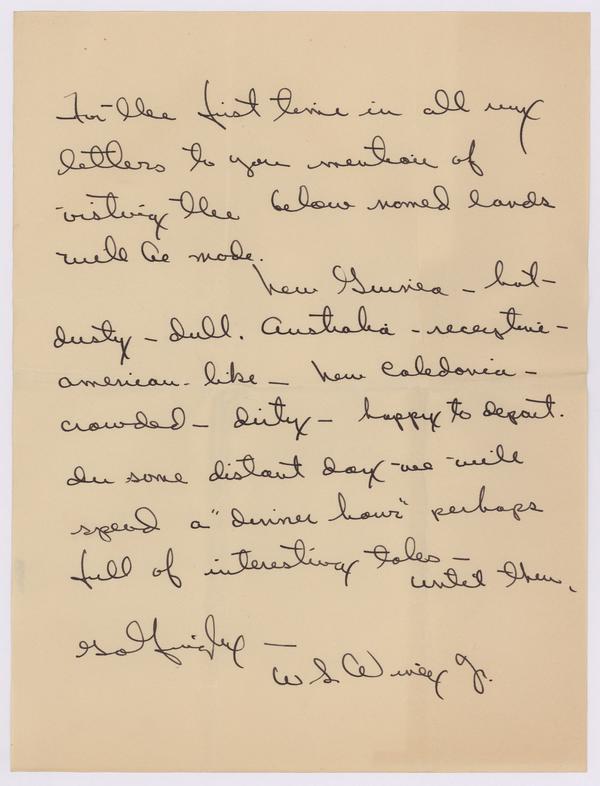 For the first time in all my
letters to you mention of
visiting the below named lands
will be made.
New Guinea – hot –
dusty – dull. Australia – receptive –
american-like – New Caledonia –
crowded – dirty – happy to depart.
In some distant day we will
spend a "dinner hour" perhaps
full of interesting tales –
until then,
Golfingly –
W S Jr.